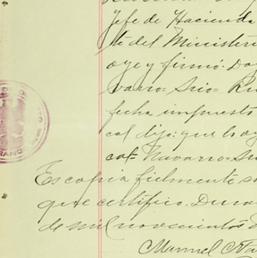 Jefe de Hacienda
te del Ministeri
oye y firmó. Doy
varro. Srio. Ru
fecha impuesto
cal dijo: que lo oy
cal. Navarro. Sri
Es copia fielmente s
que certifico. Duran
de mil novecientos d
Manuel Na